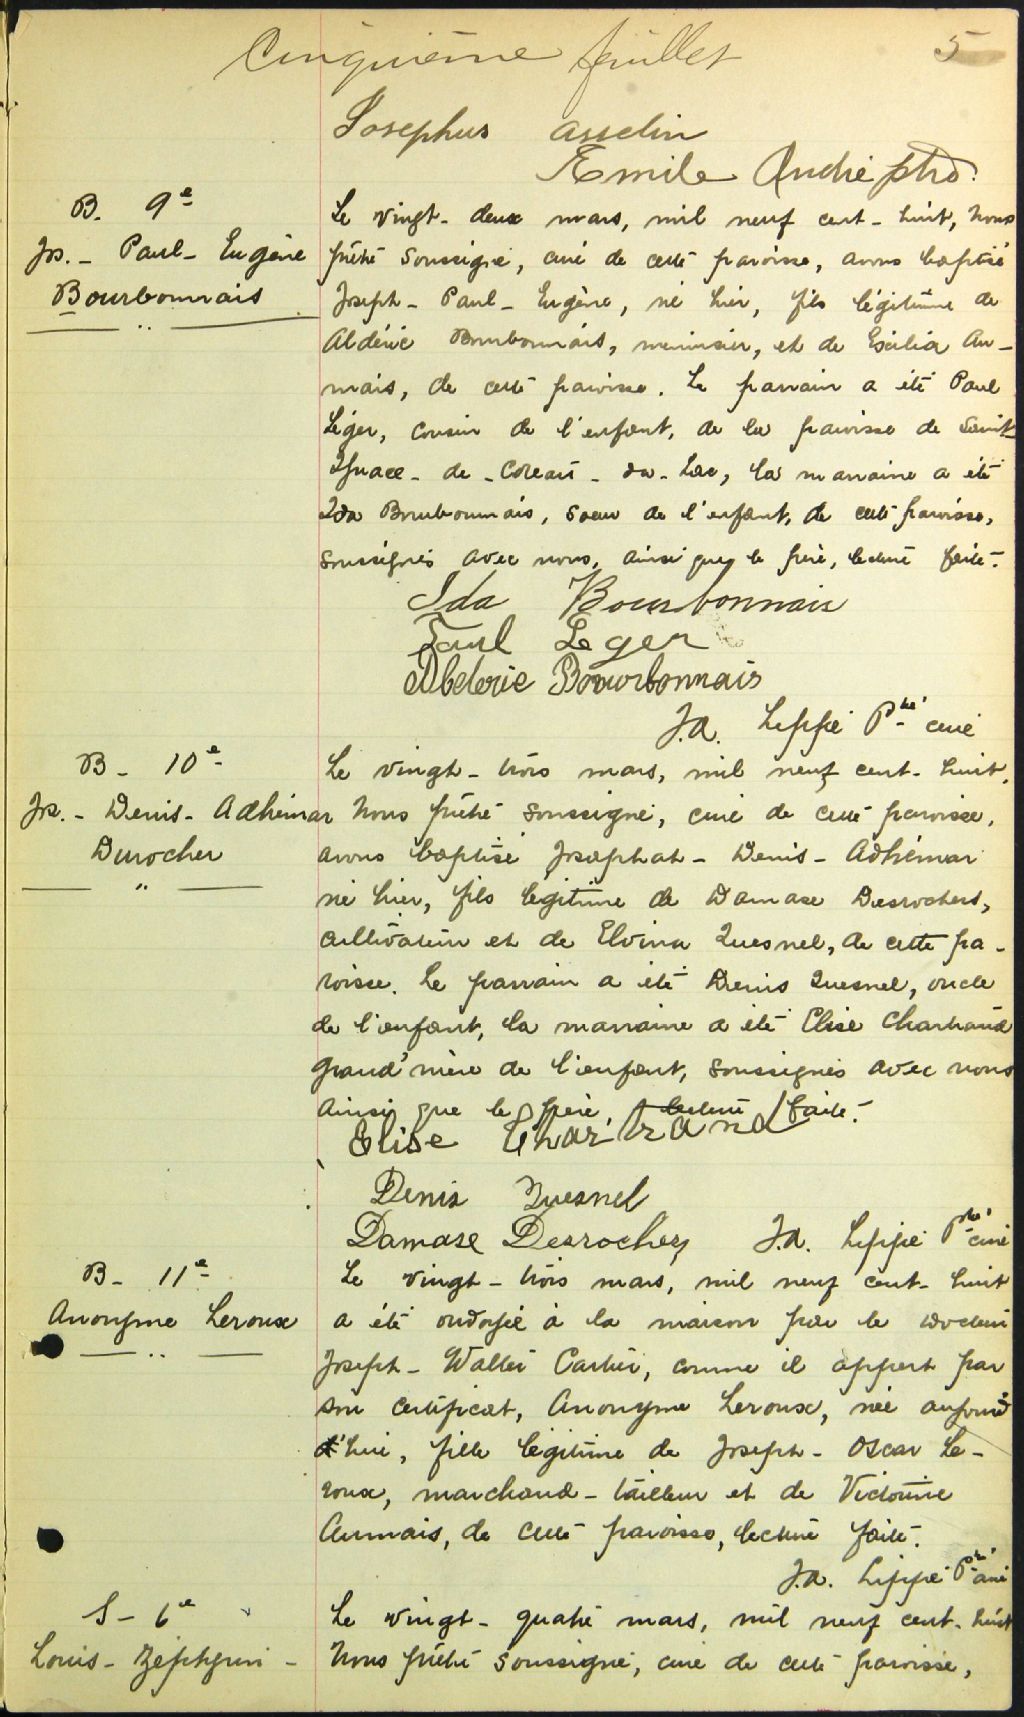 Cinquième feuillet 5
Josephus Asselin
Emile André ptre.
B. 9e
Js. - Paul - Eugène
Bourbonnais
Le vingt-deux mars, mil neuf cent-huit, nous
prêtre soussigné, curé de cette paroisse, avons baptisé
Joseph - Paul - Eugène, né hier, fils légitime de
Aldéric Bourbonnais, menuisier, et de Exilia Au-
mais, de cette paroisse. Le parrain a été Paul
Léger, cousin de l'enfant, de la paroisse de Saint-
Ignace - de - Coteau - du - Lac, la marraine a été
Ida Bourbonnais, soeur de l'enfant, de cette paroisse,
soussignés avec nous, ainsi que le père, lecture faite.
Ida Bourbonnais
Paul Leger
Alderic Bourbonnais
J.A. Lippé Ptre curé
B - 10e
Js. - Denis - Adhémar
Durocher
Le vingt-trois mars, mil neuf cent-huit,
Nous prêtre soussigné, curé de cette paroisse,
avons baptisé Josaphat - Denis - Adhémar
né hier, fils légitime de Damase Desrochers,
cultivateur et de Elvina Quesnel, de cette pa-
roisse. Le parrain a été Denis Quesnel, oncle
de l'enfant, la marraine a été Elise Chartrand
grand'mère de l'enfant, soussignés avec nous
ainsi que le père, lecture faite.
Elise Chartrand
Denis Quesnel
Damase Desrochers J.A. Lippé Ptre curé
B - 11e
Anonyme Leroux
Le vingt-trois mars, mil neuf cent-huit
a été ondoyée à la maison par le Docteur
Joseph - Walter Cartier, comme il appert par
son certificat, Anonyme Leroux, née aujourd'
d'hui, fille légitime de Joseph - Oscar Le-
roux, marchand-tailleur et de Victorine
Aumais, de cette paroisse, lecture faite.
J.A. Lippé Ptre curé
S - 6e
Louis - Zéphyrin -
Le vingt-quatre mars, mil neuf cent-huit
Nous prêtre soussigné, curé de cette paroisse,